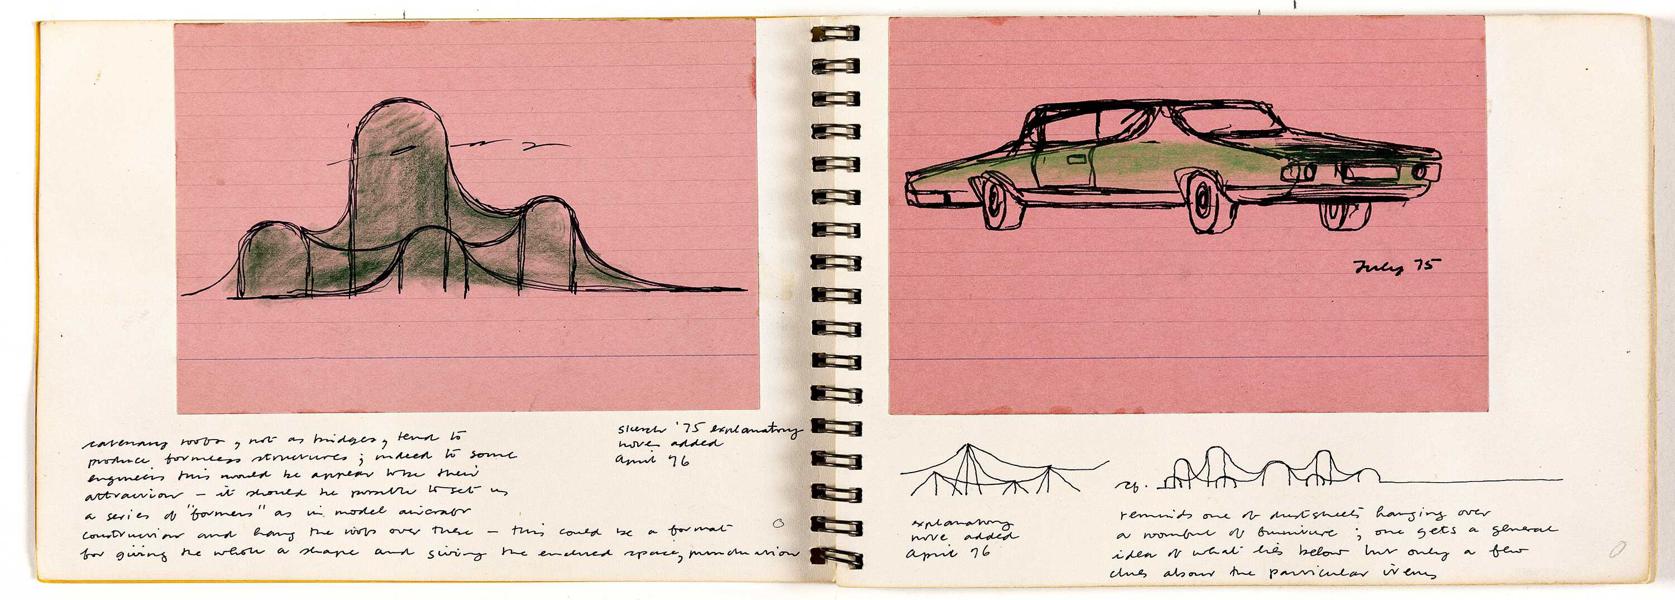 catenary roofs, not as bridges, tend to
produce formless structures; indeed to some
engineers this would be appear to be their
attraction – it should be possible to set up
a series of "formers" as in model aircraft
construction and hang the roofs over these – this could be a format
for giving the whole a shape and giving the enclosed space, punctuation
sketch '75 explanatory
note added
April 76
July 75
explanatory
note added
April 76
reminds one of dustsheets hanging over
a roomful of furniture; one gets a general
idea of what lies below but only a few
clues about the particular items